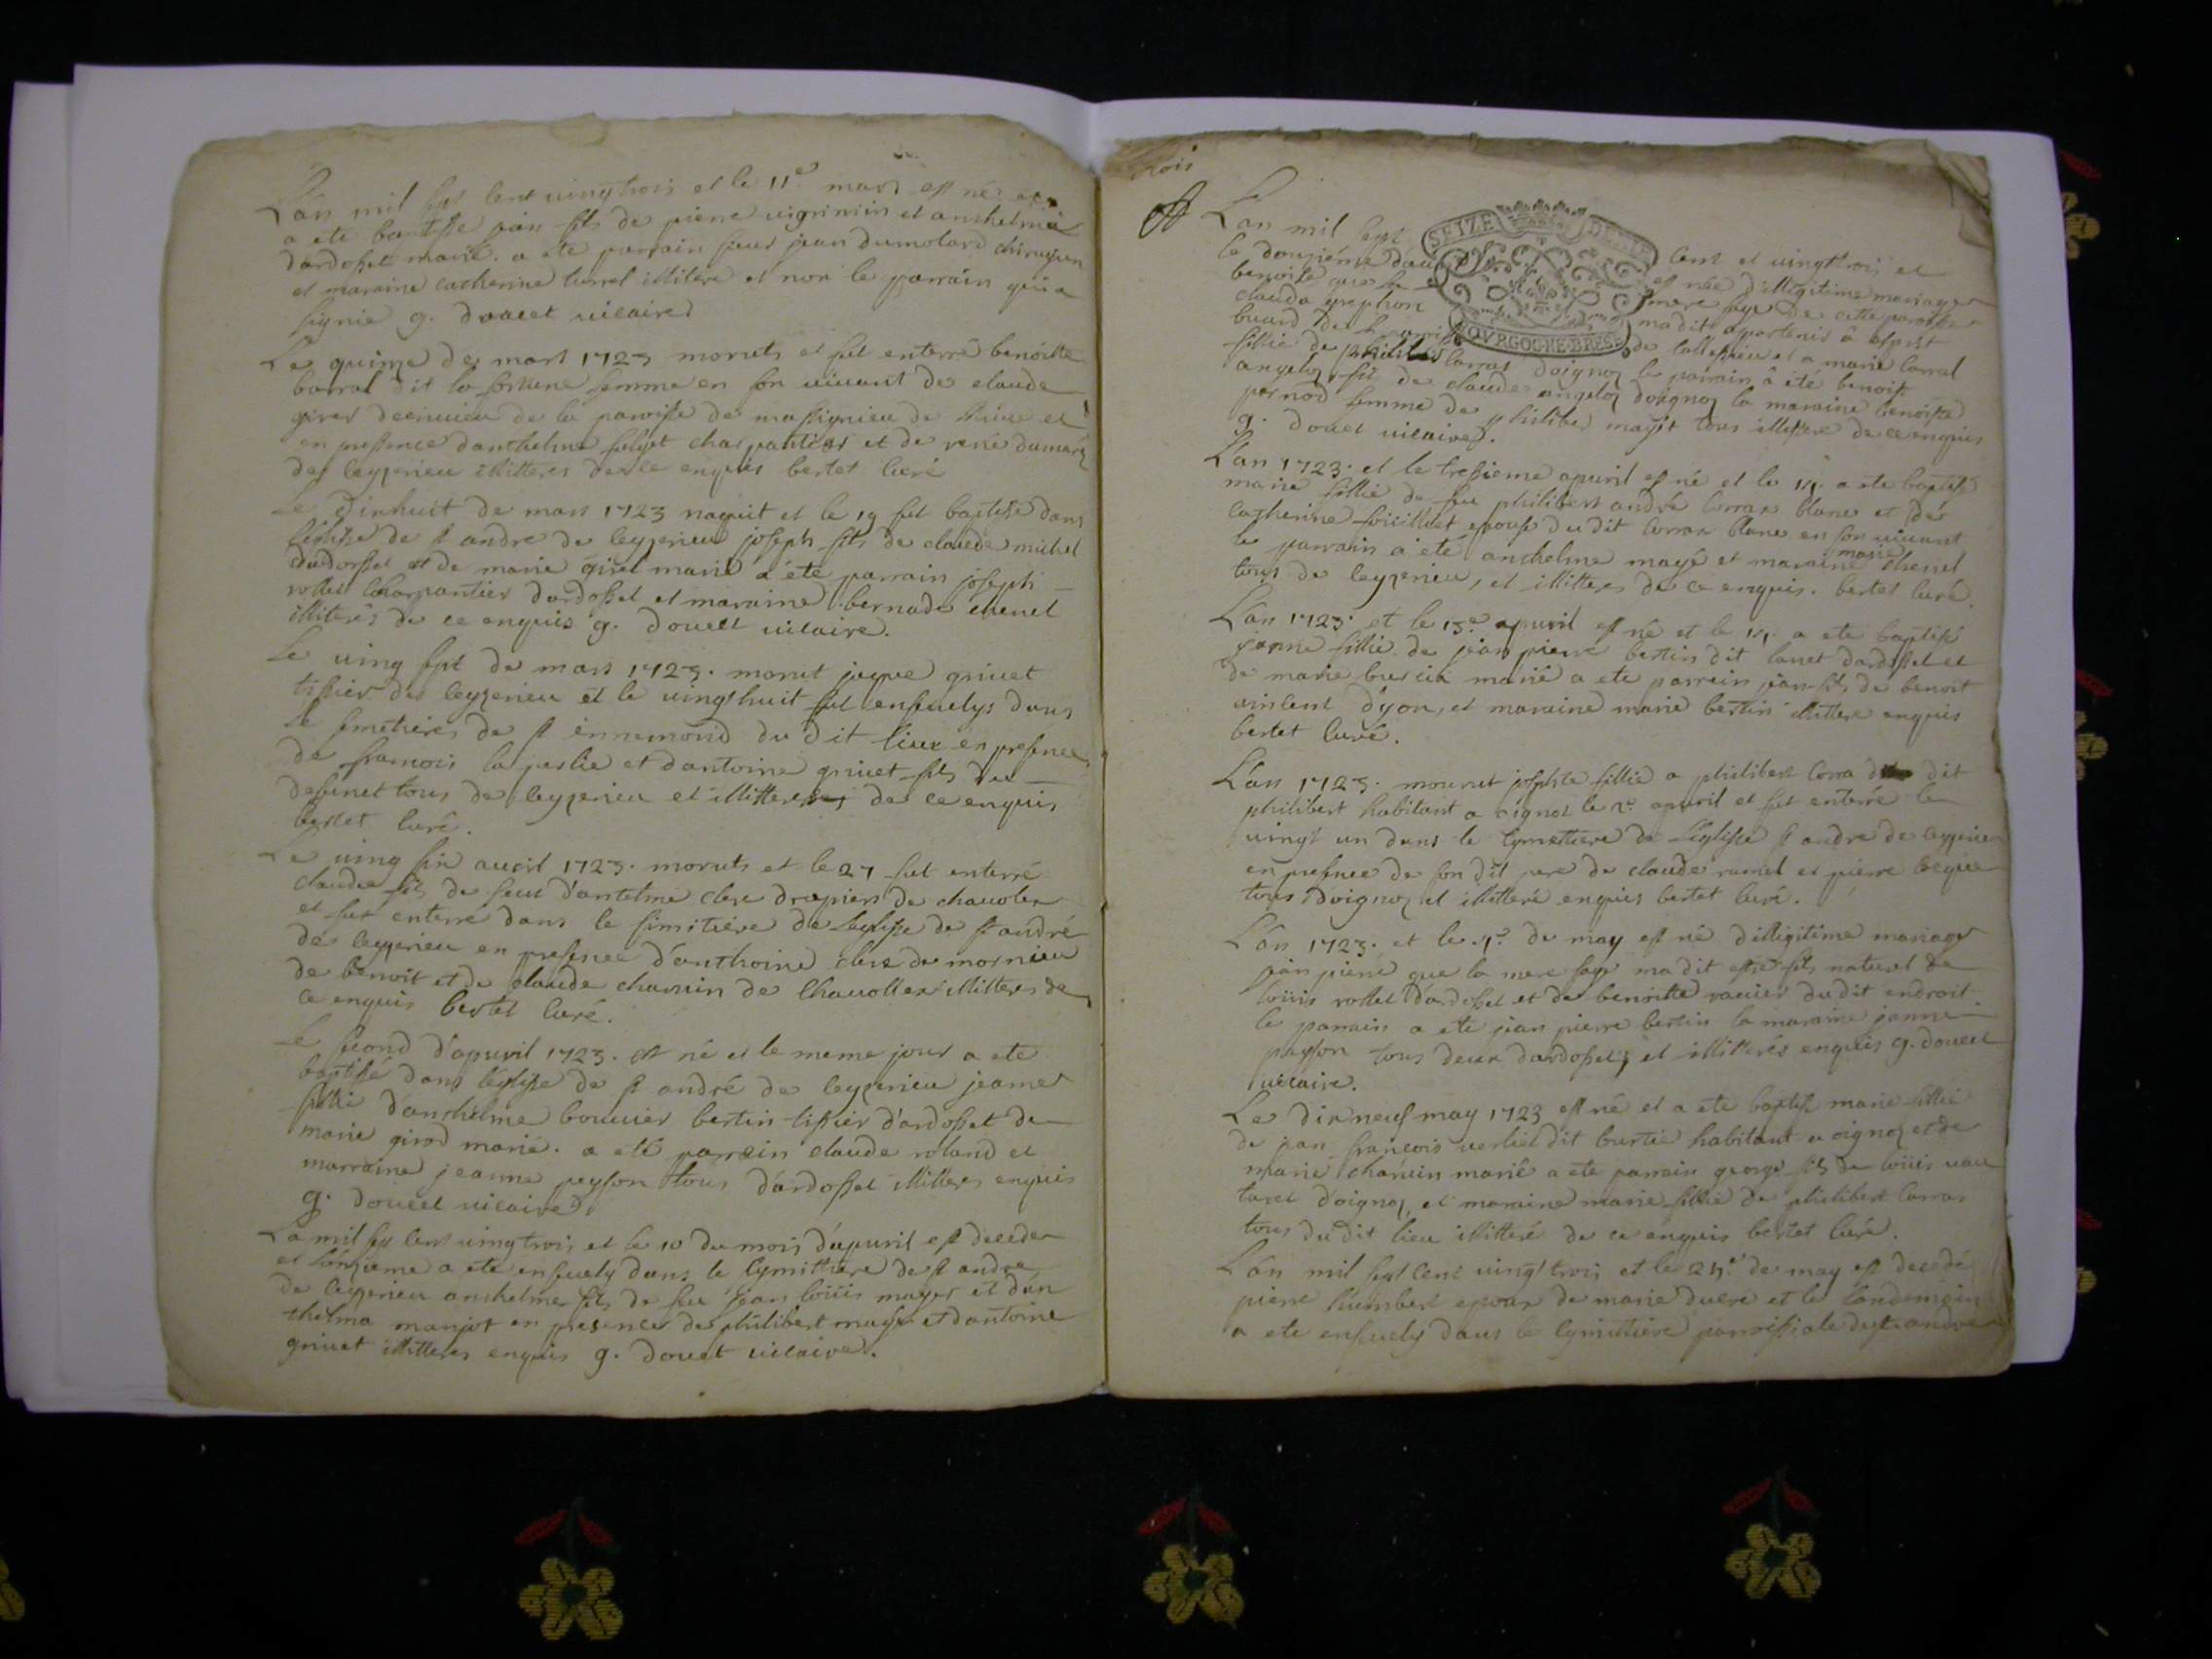 L'an mil sept cent vingt trois et le 11e mars est né et
a ete baptisse jan fils de pierre et anthelmie
d'ardosset marié. a ete parrain sieur jean dumolard chirugien
et maraine catherine turrel illitere et non le parrain qui a
signie g. doucet vicaire
Le quinze de mars 1723 moruts et fut enterré benoitte
barral dit la fortune femme en son vivant de claude
de la paroisse de massignieu de rive et
en pressence danthelme charpantier et de rené dumarez
des leyzerieu illitteres de ce enquis bertet curé
Le dixhuit de mars 1723 naquit et le 19 fut baptisse dans
l'eglisse de st andre de leyzerieu joseph fils de claude michel
dudosset et de marie giret marié a été parrain joseph
rollet charpantier dardosset et maraine bernade chenel
illiterés de ce enquis g. doucet vicaire.
Le ving sept de mars 1723. morut jaque grivet
tissier des leyzerieu et le vingthuit fut ensevelys dans
le semetieres de st ennemond du dit lieux en presence
de framois la perlie et dantoine grivet fils du
defunct tous de leyzerieu et illitteres de ce enquis
bertet curé.
Le ving six avril 1723. moruts et le 27 fut enterré
claude fils de feut d'antelme clerc drapiers de chavoley
et fut enterre dans le simitiere de leglisse de st andré
de leyzerieu en presence d'anthoine clerc de mornieu
de benoit et de claude charvin de chavolley illitteres de
ce enquis bertet curé.
Le second d'apvril 1723. est né et le meme jour a ete
baptisé dans l'eglisse de st andré de leyzerieu jeanne
fillie d'anthelme bouvier bertin tissier d'ardosset de
marie girod marié. a eté parrein claude roland et
marraine jeanne peysson tous d'ardosset illitteres enquis
g. doucet vicaire
La mil sept cent vingtrois et le 10 du mois d'apvril est deceder
et l'onzieme a ete ensevely dans le cymittiere de st andre
de leyzerieu anthelme fils de feu jean loüis mayer et d'an
thelma manjot en presence de philibert maye et dantoine
grivet illitteres enquis g. doucet vicaire.
trois
SEIZE DENIE
BOVRGOGNE·BRESSE
L'an mil sept cent et vingttrois et
le douzième d'av est née d'illégitime mariage
benoite que la mere sage de cette paroisse
claude grephon ma dit apartenir à
buard de de et a marie corral
fillie de philibert corras doignoz le parrain à été benoit
angeloz fils de claude angeloz doignoz la maraine benoiste
pernod femme de philibert mayet tous illittere de ce enquis
g. doucet vicaire.
L'an 1723. et le tressieme apvril est né et le 14 a ete baptisé
marie fillie de feu philibert andré corras blanc et de
catherine epouse du dit corras blanc en son vivant
le parrain a été anthelme mayé et maraine marie chenel
tous de leyzerieu, et illitteres de ce enquis. bertet curé.
L'an 1723. et le 13e apvril est né et le 14 a ete baptisé
janne fillie de jean pierre bertin dit lanet dardosset et
de marie marié a ete parrein jean fils de benoit
vincent d'yon, et maraine marie bertin illittere enquis
bertet curé.
L'an 1723. mourut josephte fillie a philibert corra dit
philibert habitant a oignoz le apvril et fut enterré le
vingt un dans le cymettiere de l'eglisse st andre de leyzerieu
en presence de son dit pere de claude ramel et pierre
tous d'oignoz et illitteré enquis bertet curé.
L'an 1723. et le de may est né d'illigitime mariage
jean pierre que la mere sage ma dit estre fils naturel de
loüis rollet d'ardosset et de benoitte ravier du dit endroit.
le parrain a ete jean pierre bertin la maraine janne
paysson tous deux dardosset, et illitterés enquis g. doucet
vicaire.
Le dixneuf may 1723 est né et a ete baptisé marie fillie
de jean francois dit burtie habitant a oignoz et de
marie charvin marié a ete parrain george fils de loüis
d'oignoz, et maraine marie fillie de philibert corras
tous du dit lieu illitteré de ce enquis bertet curé.
L'an mil sept cent vingt trois et le 24e de may est decedé
pierre humbert epoux de marie ducre et le landemain
a ete ensevely dans le cymittiere parroissiale de st andre